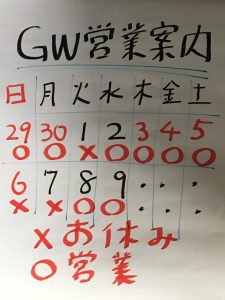 GW営業案内
日 月 火 水 木 金 土
29 30 1 2 3 4 5
○ ○ × ○ ○ ○ ○
6 7 8 9 ・・ ・・ ・・
× × ○ ○ ・ ・ ・
×お休み
○営業